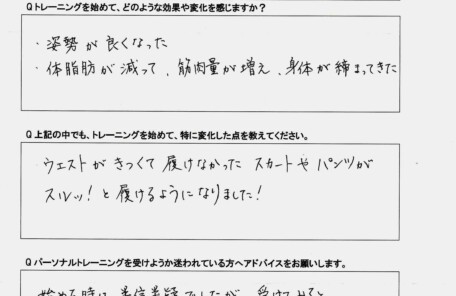 Qトレーニングを始めて、どのような効果や変化を感じますか？
・姿勢が良くなった
・体脂肪が減って、筋肉量が増え、身体が締まってきた
Q上記の中でも、トレーニングを始めて、特に変化した点を教えてください。
ウェストがきつくて履けなかったスカートやパンツが
スルッ！と履けるようになりました！
Qパーソナルトレーニングを受けようか迷われている方へアドバイスをお願いします。
始めた時は半信半疑でしたが、受けてみると